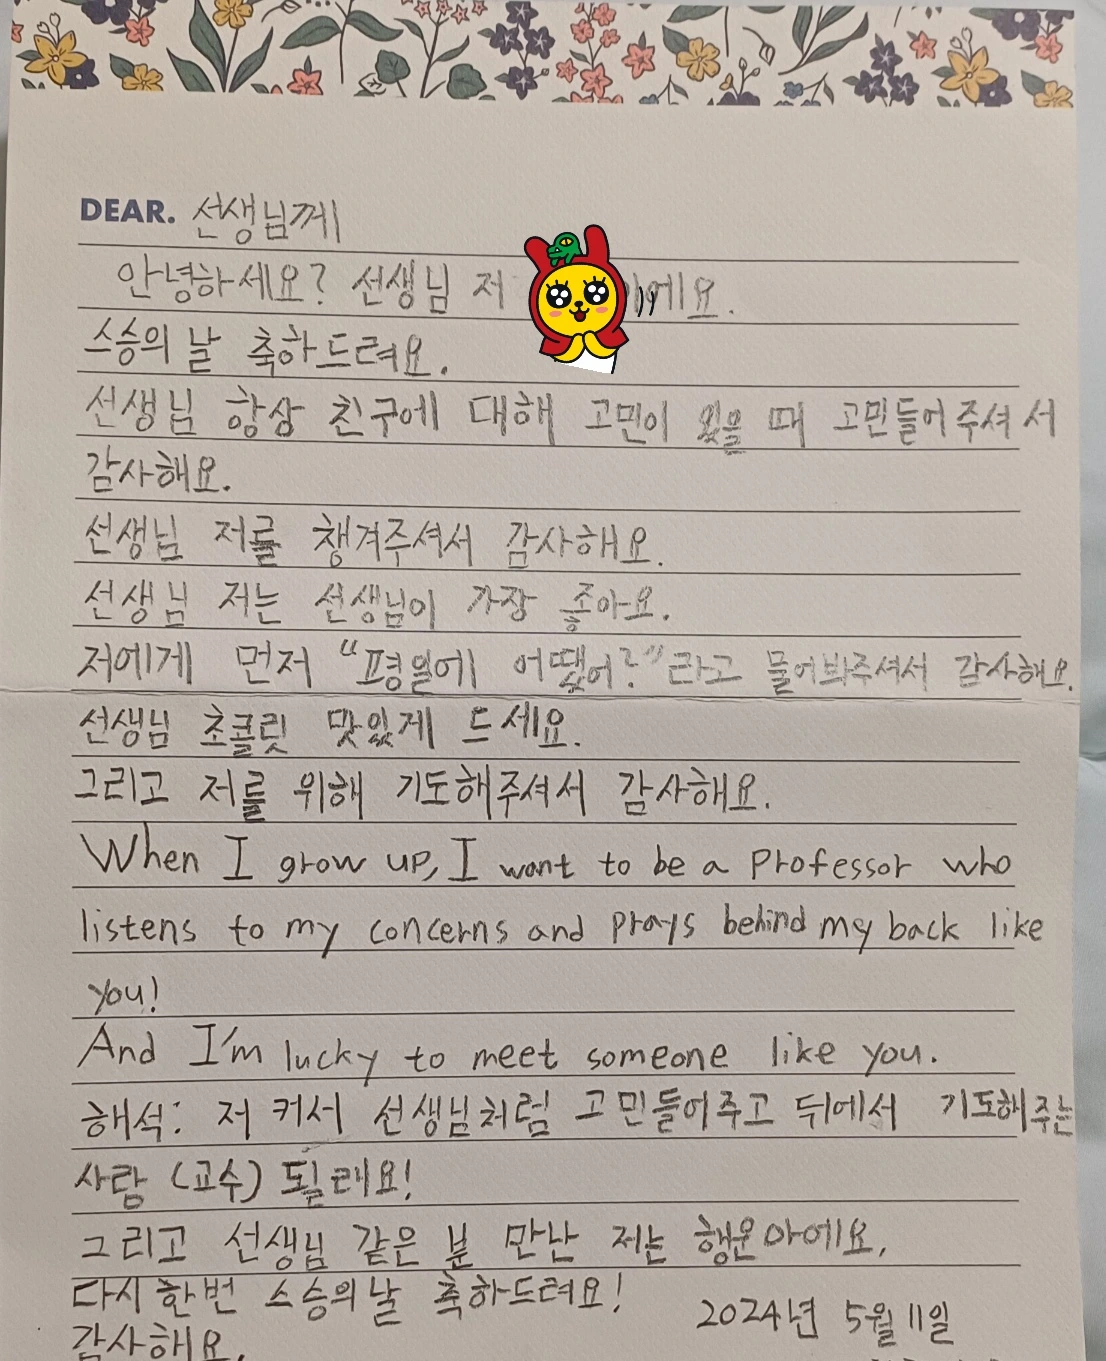 DEAR. 선생님께
안녕하세요? 선생님 저 이에요.
스승의 날 축하드려요.
선생님 항상 친구에 대해 고민이 있을 때 고민들어주셔서
감사해요.
선생님 저를 챙겨주셔서 감사해요.
선생님 저는 선생님이 가장 좋아요.
저에게 먼저 "평일에 어땠어?"라고 물어봐주셔서 감사해요.
선생님 초콜릿 맛있게 드세요.
그리고 저를 위해 기도해주셔서 감사해요.
When I grow up, I want to be a professor who
listens to my concerns and prays behind my back like
you!
And I'm lucky to meet someone like you.
해석: 저 커서 선생님처럼 고민들어주고 뒤에서 기도해주는
사람 (교수) 될래요!
그리고 선생님 같은 분 만난 저는 행운아에요,
다시 한번 스승의 날 축하드려요!
감사해요.
2024년 5월 11일